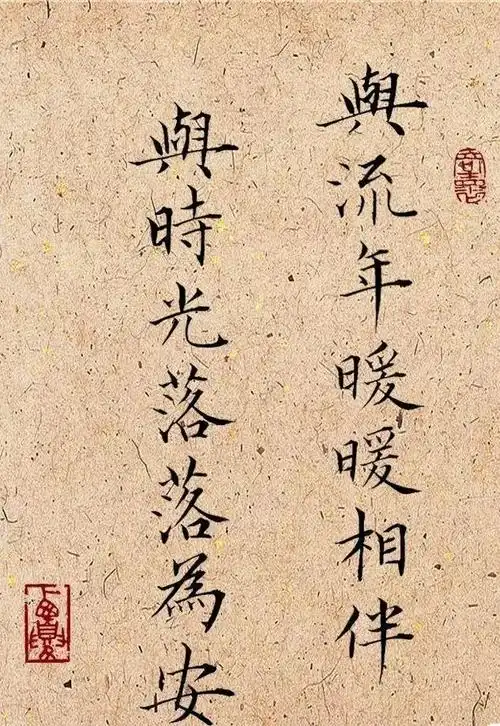 與流年暖暖相伴
與時光落落為安